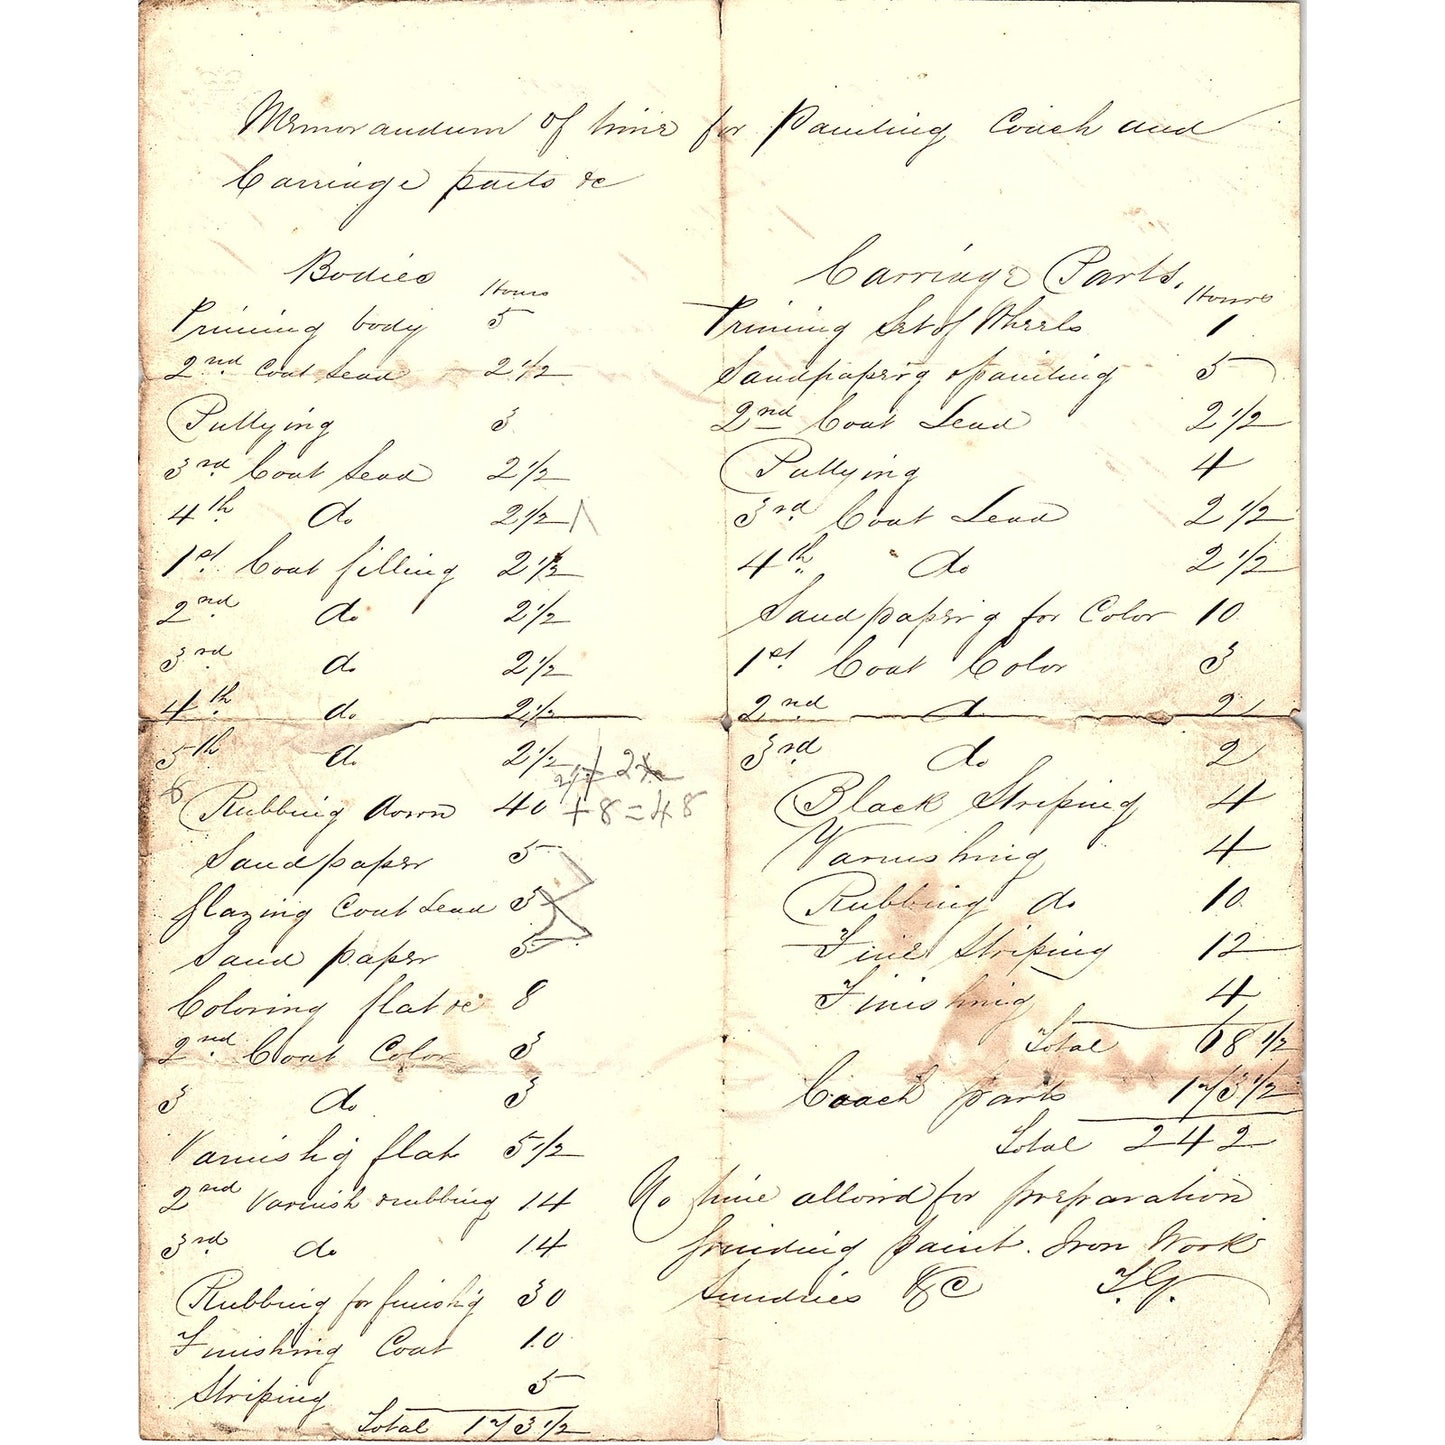 Memorandum of time for Painting Coach and
Carriage parts &c
Bodies
Hours
Priming body 5
2nd Coat Lead 2 1/2
Puttying 3
3rd Coat Lead 2 1/2
4th do 2 1/2
1st Coat filling 2 1/2
2nd do 2 1/2
3rd do 2 1/2
4th do 2 1/2
5th do 2 1/2
6
Rubbing down 40 + 8 = 48
Sand paper 5
Glazing Coat Lead 3
Sand paper 5
Coloring flat &c 8
2nd Coat Color 3
3 do 3
Varnish'g flat 5 1/2
2nd Varnish & rubbing 14
3rd do 14
Rubbing for finish'g 30
Finishing Coat 10
Striping 5
Total 173 1/2
Carriage Parts.
Hours
Priming Set of Wheels 1
Sandpaper'g & painting 5
2nd Coat Lead 2 1/2
Puttying 4
3rd Coat Lead 2 1/2
4th do 2 1/2
Sandpaper'g for Color 10
1st Coat Color 3
2nd do 2
3rd do 2
Black Striping 4
Varnishing 4
Rubbing do 10
Fine Striping 12
Finishing 4
Total 68 1/2
Coach parts 173 1/2
Total 242
No time allowed for preparation
Grinding paint. Iron Work
Sundries &c T.G.